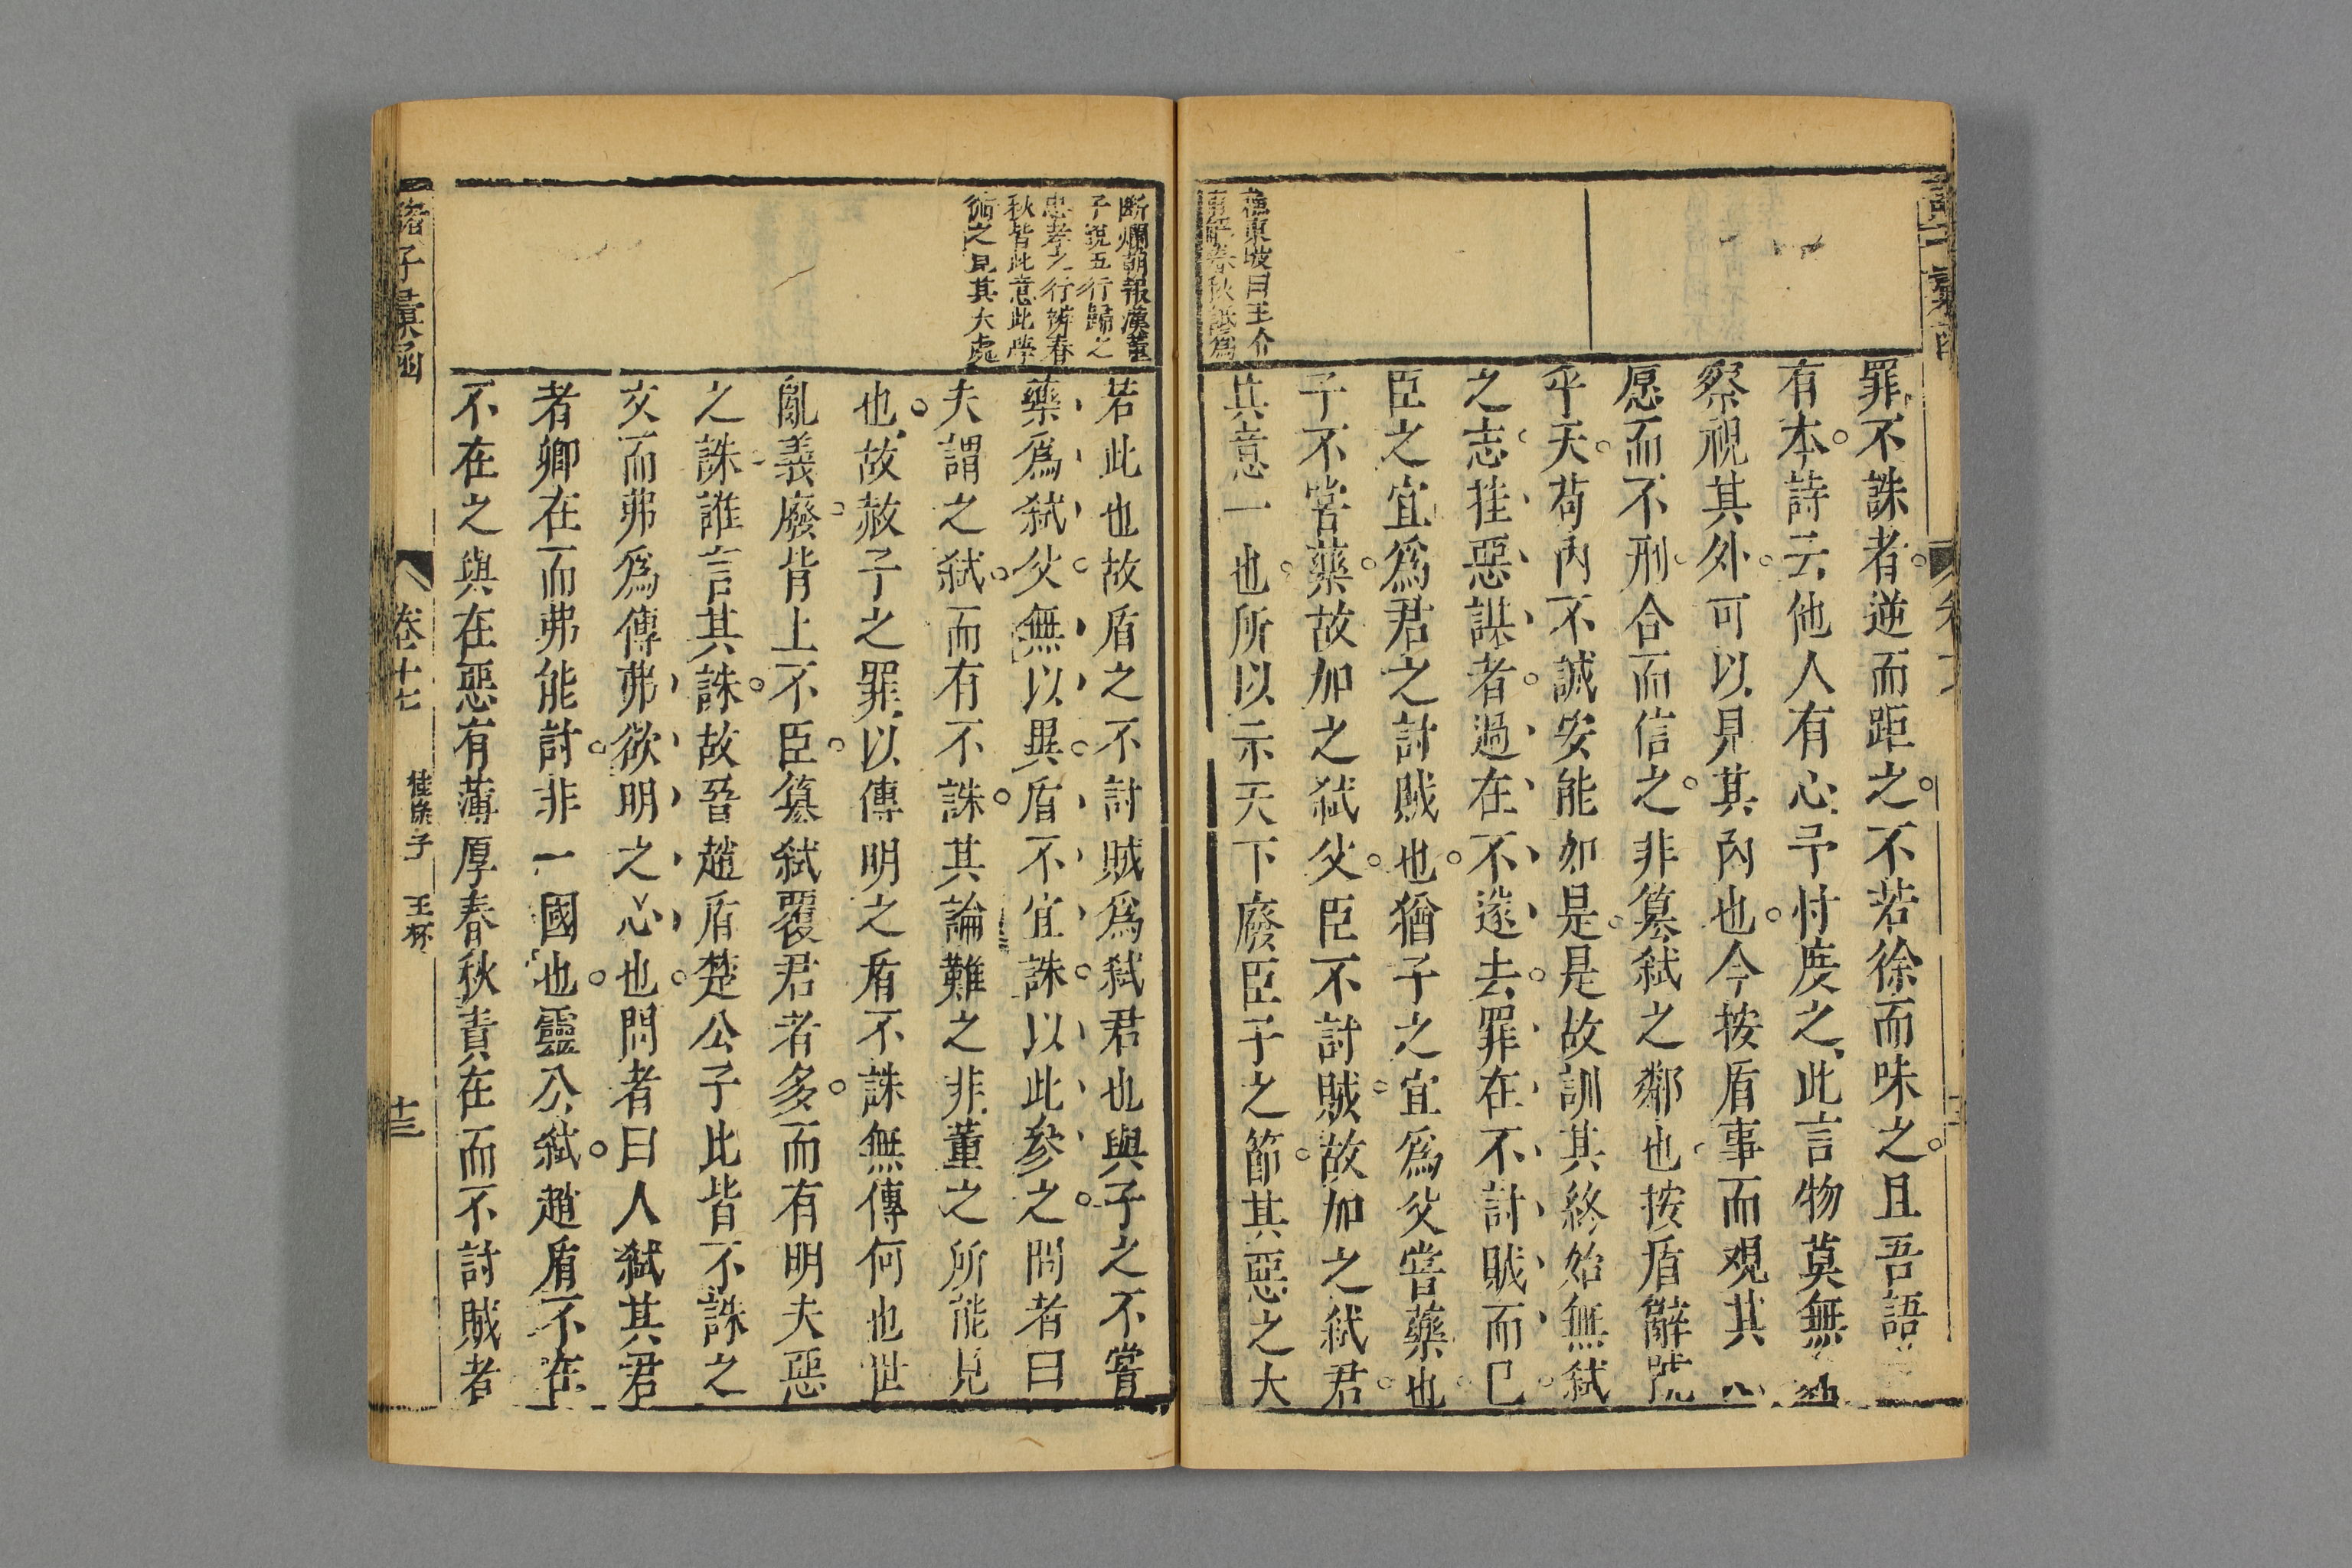 罪不誅者逆而距之不若徐而味之且吾語
有本詩云他人有心予忖度之此言物莫無
察視其外可以見其內也今按盾事而觀其心
愿而不刑合而信之非篡弒之鄰也按盾辭號
乎天苟內不誠安能如是是故訓其終始無弒
之志挂惡謀者過在不遂去罪在不討賊而已
臣之宜為君之討賊也猶子之宜為父嘗藥也
子不嘗藥故加之弒父臣不討賊故加之弒君
其意一也所以示天下廢臣子之節其惡之大
蘓東坡曰王介
甫解春秋誤為
断爛朝報漢董
子說五行歸之
忠孝之行辨春
秋皆此意此學
術之見其大處
若此也故盾之不討賊為弒君也與子之不嘗
藥爲弒父無以異盾不宜誅以此參之問者曰
夫謂之弒而有不誅其論難之非董之所能見
也故赦子之罪以傳明之盾不誅無傳何也世
亂義廢背上不臣篡弒覆君者多而有明夫惡
之誅誰言其誅故晉趙盾楚公子比皆不誅之
文而弗爲傳弗欲明之心也問者曰人弒其君
者卿在而弗能討非一國也靈公弒趙盾不在
不在之與在惡有薄厚春秋責在而不討賊者
諸子彙函
卷十七
桂巖子
王杯
十三